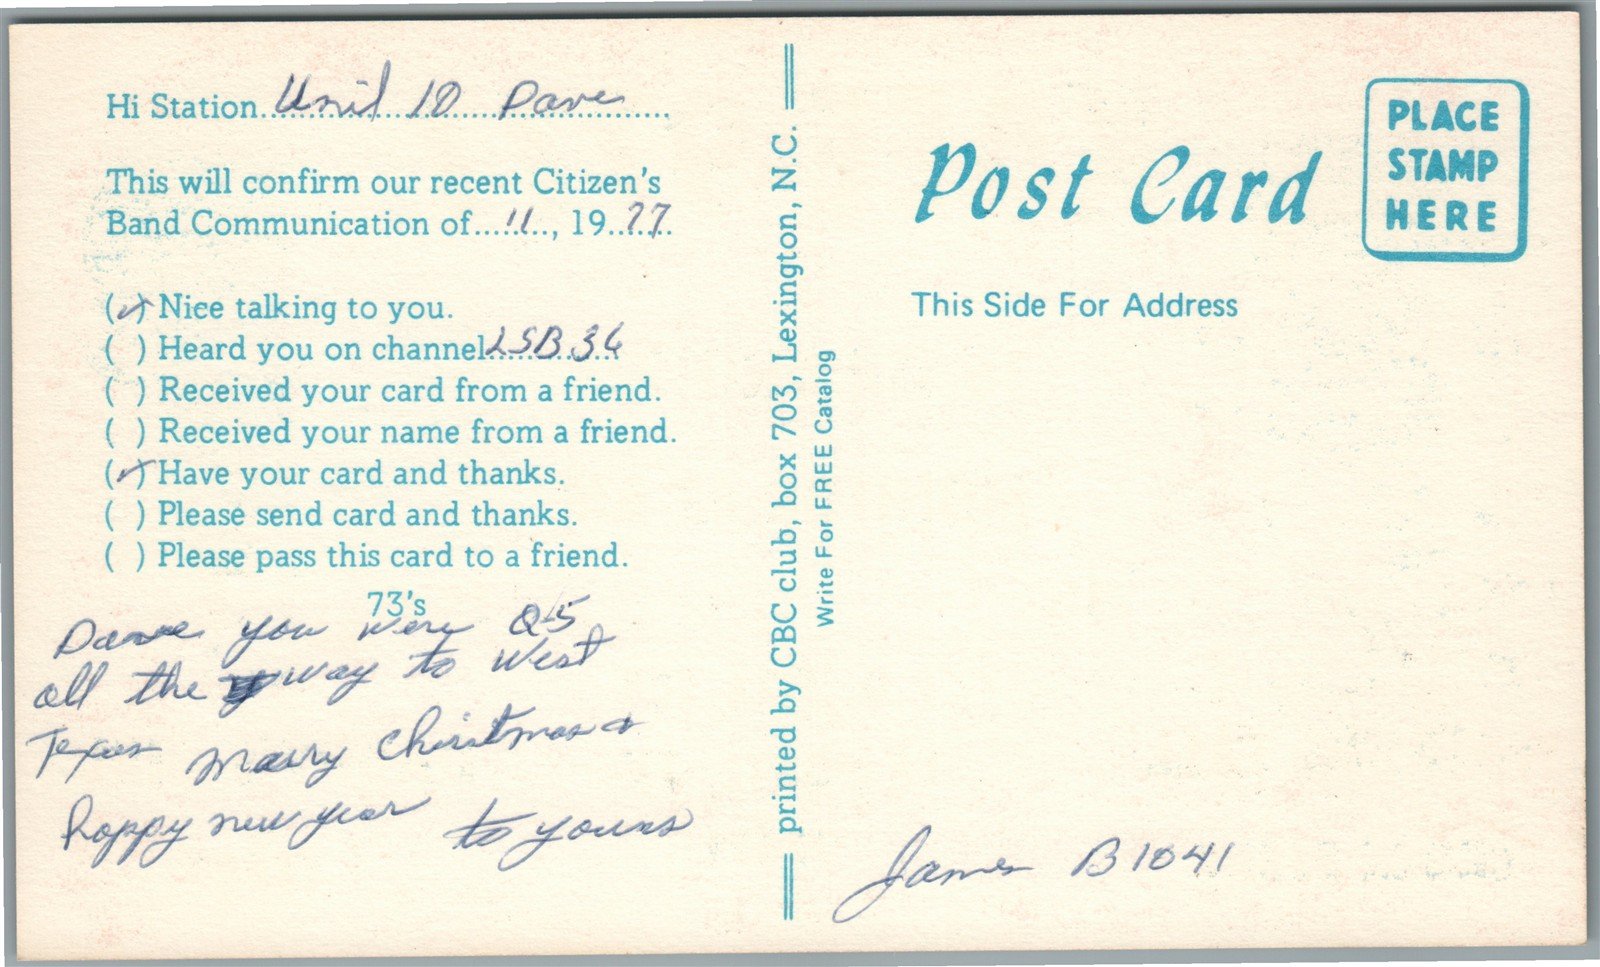 Hi Station Unit 10 Dave
This will confirm our recent Citizen's
Band Communication of 11, 1977
(✓) Nice talking to you.
( ) Heard you on channel LSB 36
( ) Received your card from a friend.
( ) Received your name from a friend.
(✓) Have your card and thanks.
( ) Please send card and thanks.
( ) Please pass this card to a friend.
73's
Dave you were Q-5
all the way to West
Texas Marry Christmas &
happy new year to yours
printed by CBC club, box 703, Lexington, N.C.
Write For FREE Catalog
Post Card
PLACE
STAMP
HERE
This Side For Address
James B1041